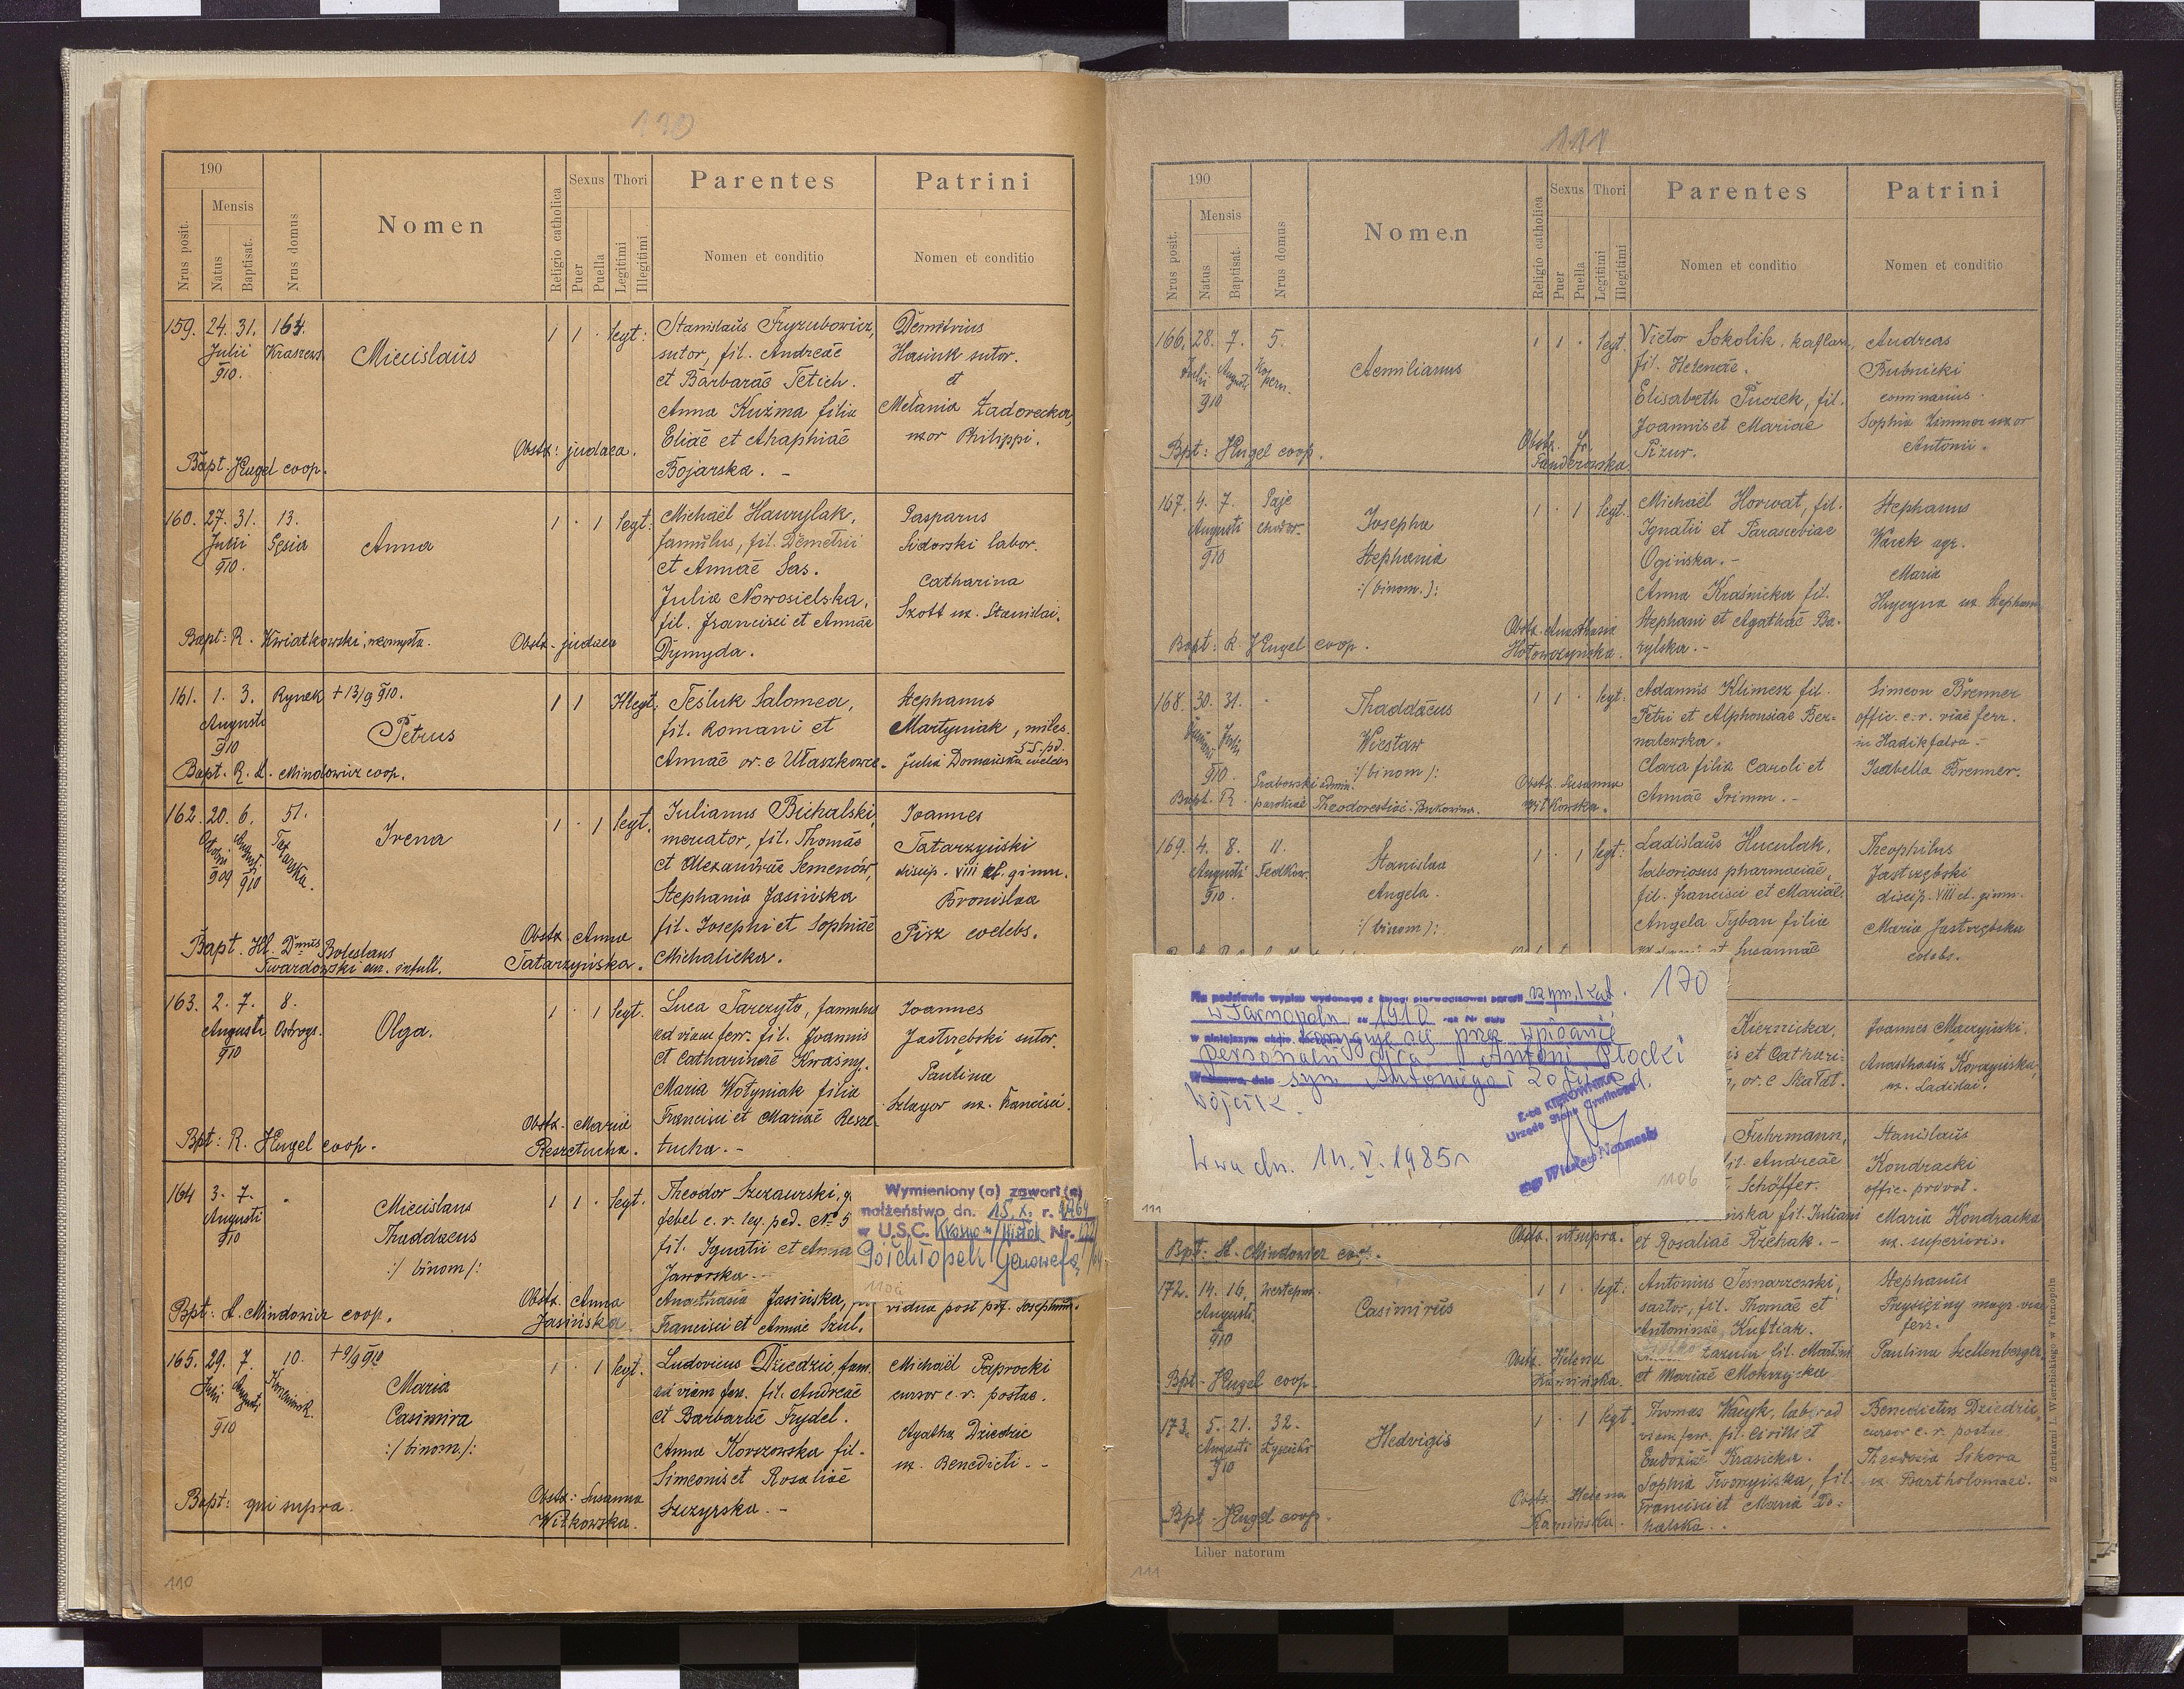 130
190
Nrus posit.
Mensis
Natus
Baptisat.
Nrus domus
Nomen
Religio catholica
Sexus
Puer
Puella
Thori
Legitimi
Illegitimi
Parentes
Nomen et conditio
Patrini
Nomen et conditio
159. 24. 31. 164.
Julii Kraszews.
910.
Miecislaus
1 1 . legt.
Stanislaus Fryzubowicz,
sutor, fil. Andreae
et Barbarae Tetich.
Anna Kuźma filia
Eliae et Ahaphiae
Bojarska. -
Demitrius
Hasiuk sutor.
et
Melania Zadorecka,
uxor Philippi.
Obstx: judaea.
Bapt. Hugel coop.
160. 27. 31. 13.
Julii Gęsia
910.
Anna
1 . 1 legt.
Michaël Hawrylak,
famulus, fil. Demetrii
et Annae Sas.
Julia Nowosielska,
fil. Francisci et Annae
Dymyda.
Gasparus
Sidorski labor.
Catharina
Szott ux. Stanislai.
Bapt: R. Kwiatkowski,
Obstx. judaea
161. 1. 3. Rynek + 13/9 910.
Augusti
910
Petrus
1 1 Illegt.
Tesluk Salomea,
fil. Romani et
Annae or. e Ułaszkowce.
Stephanus
Martyniak, miles
55. pd.
Julia Domańska coelebs
Bapt. R. A. Mindowicz coop.
162. 20. 6. 51.
909 910
Irena
1 . 1 legt.
Julianus Bichalski,
mercator, fil. Thomas
et Alexandrae Semenów,
Stephania Jasińska
fil. Josephi et Sophiae
Michalicka.
Joannes
Tatarzyński
discip. VIII cl. gimn.
Bronislaa
Pisz coelebs.
Obstx Anna
Tatarzyńska.
Bapt. Ill. Dnus Boleslaus
Twardowski can. infull.
163. 2. 7. 8.
Augusti Ostrogs.
910
Olga.
1 . 1 legt.
Luca Tarczyło, famulus
ad viam ferr. fil. Joannis
et Catharinae Kwaśny.
Maria Wołyniak filia
Francisci et Mariae Resze-
tucha. -
Joannes
Jastrzebski sutor.
Paulina
Szlagor ux. Francisci.
Obstx. Maria
Reszetucha.
Bpt: R. Hugel coop.
164 3. 7. "
Augusti
910
Miecislaus
Thaddaeus
:/ binom/:
1 1 . legt.
Theodor Szczurski,
febel c. r. leg. ped. No 5
fil. Ignatii et Anna
Jaworska -
Anasthasia Jasińska,
Francisci et Annae Szul.
vidua post p. Josephum.
Wymieniony (a) zawarł (a)
małżeństwo dn. 15. X. r. 1964
w U.S.C. Krosno n/Wisłok Nr. 122/64
Genowefą
1106
Obstx. Anna
Jasińska
Bpt: A. Mindowicz coop.
165. 29. 7. 10. + 9/9 910
910
Maria
Casimira
:/ binom./:
1 . 1 legt.
Ludovicus Dziedzic, fam.
ad viam ferr. fil. Andreae
et Barbarae Frydel.
Anna Korczowska fil.
Simeonis et Rosaliae
Szczyrska. -
Michaël Paprocki
cursor c. r. postae.
Agatha Dziedzic
ux. Benedicti. -
Obstx: Susanna
Witkowska.
Bapt: qui supra.
110
111
190
Nrus posit.
Mensis
Natus
Baptisat.
Nrus domus
Nomen
Religio catholica
Sexus
Puer
Puella
Thori
Legitimi
Illegitimi
Parentes
Nomen et conditio
Patrini
Nomen et conditio
166. 28. 7. 5.
Julii Augusti Kopern.
910
Aemilianus
1 1 . legt.
Victor Sokolik, kaflarz,
fil. Helenae.
Elisabeth Puczek, fil.
Joannis et Mariae
Pizur.
Andreas
Bubnicki
cominarius.
Sophia Zimmer uxor
Antonii.
Bpt: Hugel coop.
Obstx. Fr.
Panderowska
167. 4. 7.
Augusti
910
Josepha
Stephania
:/ binom. /:
1 . 1 legt.
Michaël Horwat, fil.
Ignatii et Parasceviae
Ogińska. -
Anna Kraśnicka fil.
Stephani et Agathae Ba-
rylska. -
Stephanus
Warek agr.
Maria
Hrycyna ux. Stephani
Obstx. Anasthasia
Hołowczyńska.
Bapt: R. Hugel coop.
168. 30. 31. .
910.
Thaddaeus
Wiesław
:/ binom /:
1 1 . legt.
Adamus Klimesz fil.
Petri et Alphonsiae Ber-
nalewska.
Clara filia Caroli et
Annae Grimm. -
Simeon Brenner
offic. c. r. viae ferr.
in Hadikfalva. -
Isabella Brenner.
Obstx. Susanna
Witkowska.
Bapt. R. Grabowski admin.
parochiae Theodorestiae. Bukowina.
169. 4. 8. 11.
Augusti Fedkow.
910.
Stanislaa
Angela.
:/ binom /:
1 . 1 legt.
Ladislaus Huculak,
laboriosus pharmaciae,
fil. Francisci et Mariae
Angela Tyban filia
et Susannae
Theophilus
Jastrzębski
discip. VIII cl. gimn.
Maria Jastrzębska
coelebs.
Na podstawie wypisu wydanego z księgi pierwopisowej parafii rzym. kat.
170
w Tarnopolu za 1910
prostuje się przez wpisanie
personalii ojca: Antoni Płocki
syn Antoniego i Zofii zd.
Wójcik.
W-wa dn. 14. V. 1985 r
Z-ca KIEROWNIKA
Urzędu Stanu Cywilnego
1106
111
Kiernicka,
is et Cathari-
or. e Skałat.
Joannes Maczyński.
Anasthasia Korczyńska,
ux. Ladislai.
Fuhrmann,
fil. Andreae
Schöffer.
fil. Juliani
et Rosaliae Rzehak. -
Stanislaus
Kondracki
offic. privat.
Maria Kondracka
ux. superioris.
Obstx. ut supra.
Bpt: A. Mindowicz coop.
172. 14. 16.
Augusti
910
Casimirus
1 1 . legt:
Antonius Tesnarzewski,
sartor, fil. Thomae et
Antoninae, Kuftiak.
fil. Martini
et Mariae Mokrzycka
Stephanus
Przysiężny magr. viae
ferr.
Paulina Szellenberger
Obstx. Helena
Kamińska.
Bpt. Hugel coop.
173. 5. 21. 32.
Augusti
910
Hedvigis
1 . 1 legt.
Thomas Wacyk, labor ad
viam ferr. fil. Cirilli et
Eudoxiae Krasicka.
Sophia Tworzyńska, fil.
Francisci et Maria Do-
halska. .
Benedictus Dziedzic,
cursor c. r. postae
Theodosia Sikora
ux. Bartholomaei.
Obstx. Helena
Kamińska.
Bpt. Hugel coop.
Liber natorum
Z drukarni L. Wierzbickiego w Tarnopolu
111